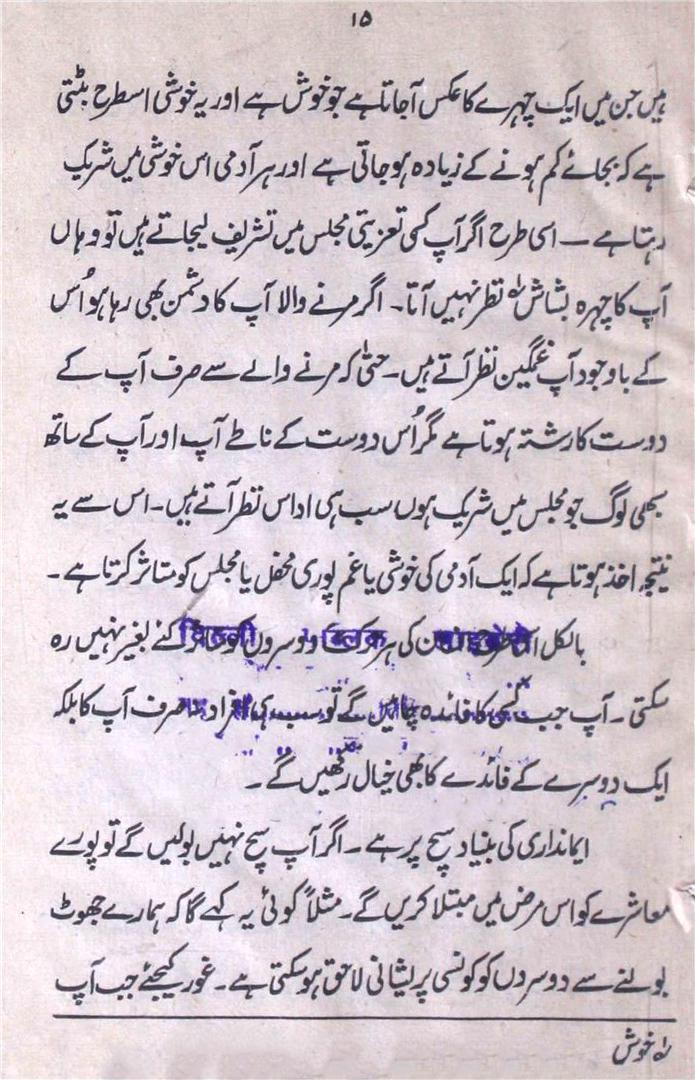 ۱۵
ہیں جن میں ایک چہرے کا عکس آجاتا ہے جو خوش ہے اور یہ خوشی اسطرح بٹتی
ہے کہ بجائے کم ہونے کے زیادہ ہو جاتی ہے اور ہر آدمی اس خوشی میں شریک
رہتا ہے ۔۔ اسی طرح اگر آپ کسی تعزیتی مجلس میں تشریف لیجاتے ہیں تو وہاں
آپ کا چہرہ بشاش لہ نظر نہیں آتا۔ اگر مرنے والا آپ کا دشمن بھی رہا ہو اُس
کے باوجود آپ غمگین نظر آتے ہیں۔ حتیٰ کہ مرنے والے سے صرف آپ کے
دوست کا رشتہ ہوتا ہے مگر اُس دوست کے ناطے آپ اور آپ کے ساتھ
سبھی لوگ جو مجلس میں شریک ہوں سب ہی اداس نظر آتے ہیں۔ اس سے یہ
نتیجہ اخذ ہوتا ہے کہ ایک آدمی کی خوشی یا غم پوری محفل یا مجلس کو متاثر کرتا ہے۔
بالکل اسی طرح کی ہر حرکت دوسروں کو متاثر کئے بغیر نہیں رہ
سکتی۔ آپ جب کسی کا فائدہ گے تو سب ہی افراد نہ صرف آپ کا بلکہ
ایک دوسرے کے فائدے کا بھی خیال رکھیں گے۔
ایمانداری کی بنیاد سچ پر ہے۔ اگر آپ سچ نہیں بولیں گے تو پورے
معاشرے کو اس مرض میں مبتلا کریں گے۔ مثلاً کوئی یہ کہے گا کہ ہمارے جھوٹ
بولنے سے دوسروں کو کونسی پریشانی لاحق ہو سکتی ہے۔ غور کیجئے جب آپ
لہ خوش